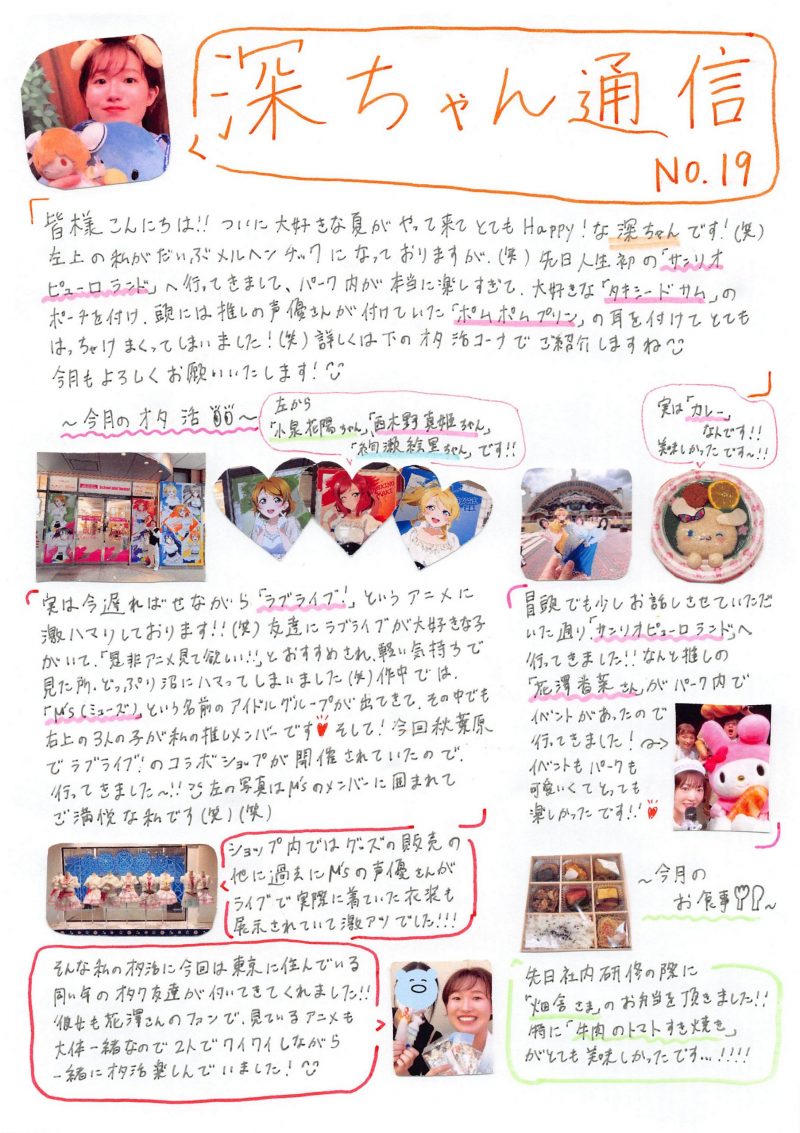 深ちゃん通信
NO.19
皆様こんにちは!! ついに大好きな夏がやって来てとてもHappy!な深ちゃんです!(笑)
左上の私がだいぶメルヘンチックになっておりますが、(笑) 先日人生初の「サンリオ
ピューロランド」へ行ってきまして、パーク内が本当に楽しすぎて、大好きな「タキシードサム」の
ポーチを付け、頭には推しの声優さんが付けていた「ポムポムプリン」の耳を付けてとても
はっちゃけまくってしまいました!(笑) 詳しくは下のオタ活コーナでご紹介しますね
今月もよろしくお願いいたします!
～今月のオタ活～
左から
「小泉花陽ちゃん」「西木野真姫ちゃん」
「絢瀬絵里ちゃん」です!!
実は「カレー」
なんです!!
美味しかったです～!!
実は今遅ればせながら「ラブライブ!」というアニメに
激ハマりしております!!(笑) 友達にラブライブが大好きな子
がいて、「是非アニメ見て欲しい!!」とおすすめされ、軽い気持ちで
見た所、どっぷり沼にハマってしまいました(笑) 作中では、
「M's(ミューズ)」という名前のアイドルグループが出てきて、その中でも
右上の3人の子が私の推しメンバーです そして! 今回秋葉原
でラブライブ!のコラボショップが開催されていたので、
行ってきました～!! 左の写真はM'sのメンバーに囲まれて
ご満悦な私です(笑)(笑)
冒頭でも少しお話しさせていただ
いた通り「サンリオピューロランド」へ
行ってきました!! なんと推しの
「花澤香菜さん」がパーク内で
イベントがあったので
行ってきました!
イベントもパークも
可愛いくてとっても
楽しかったです!!
ショップ内ではグッズの販売の
他に過去にM'sの声優さんが
ライブで実際に着ていた衣装も
展示されていて激アツでした!!!
～今月の
お食事～
そんな私のオタ活に今回は東京に住んでいる
同い年のオタク友達が付いてきてくれました!!
彼女も花澤さんのファンで、見ているアニメも
大体一緒なので2人でワイワイしながら
一緒にオタ活楽しんでいました!
先日社内研修の際に
「畑舎さま」のお弁当を頂きました!!
特に「牛肉のトマトすき焼き」
がとても美味しかったです...!!!!